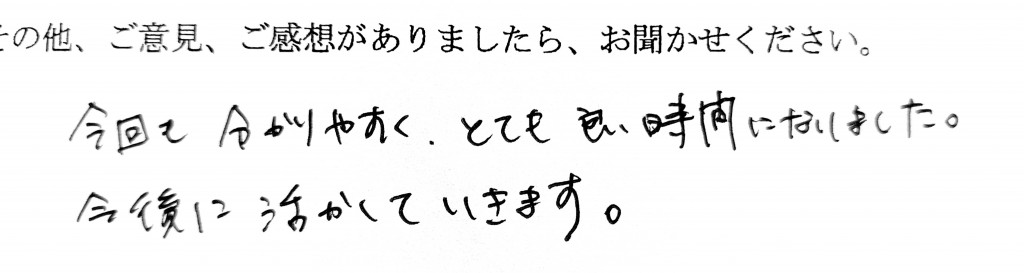 その他、ご意見、ご感想がありましたら、お聞かせください。
今回も分かりやすく、とても良い時間になりました。
今後に活かしていきます。